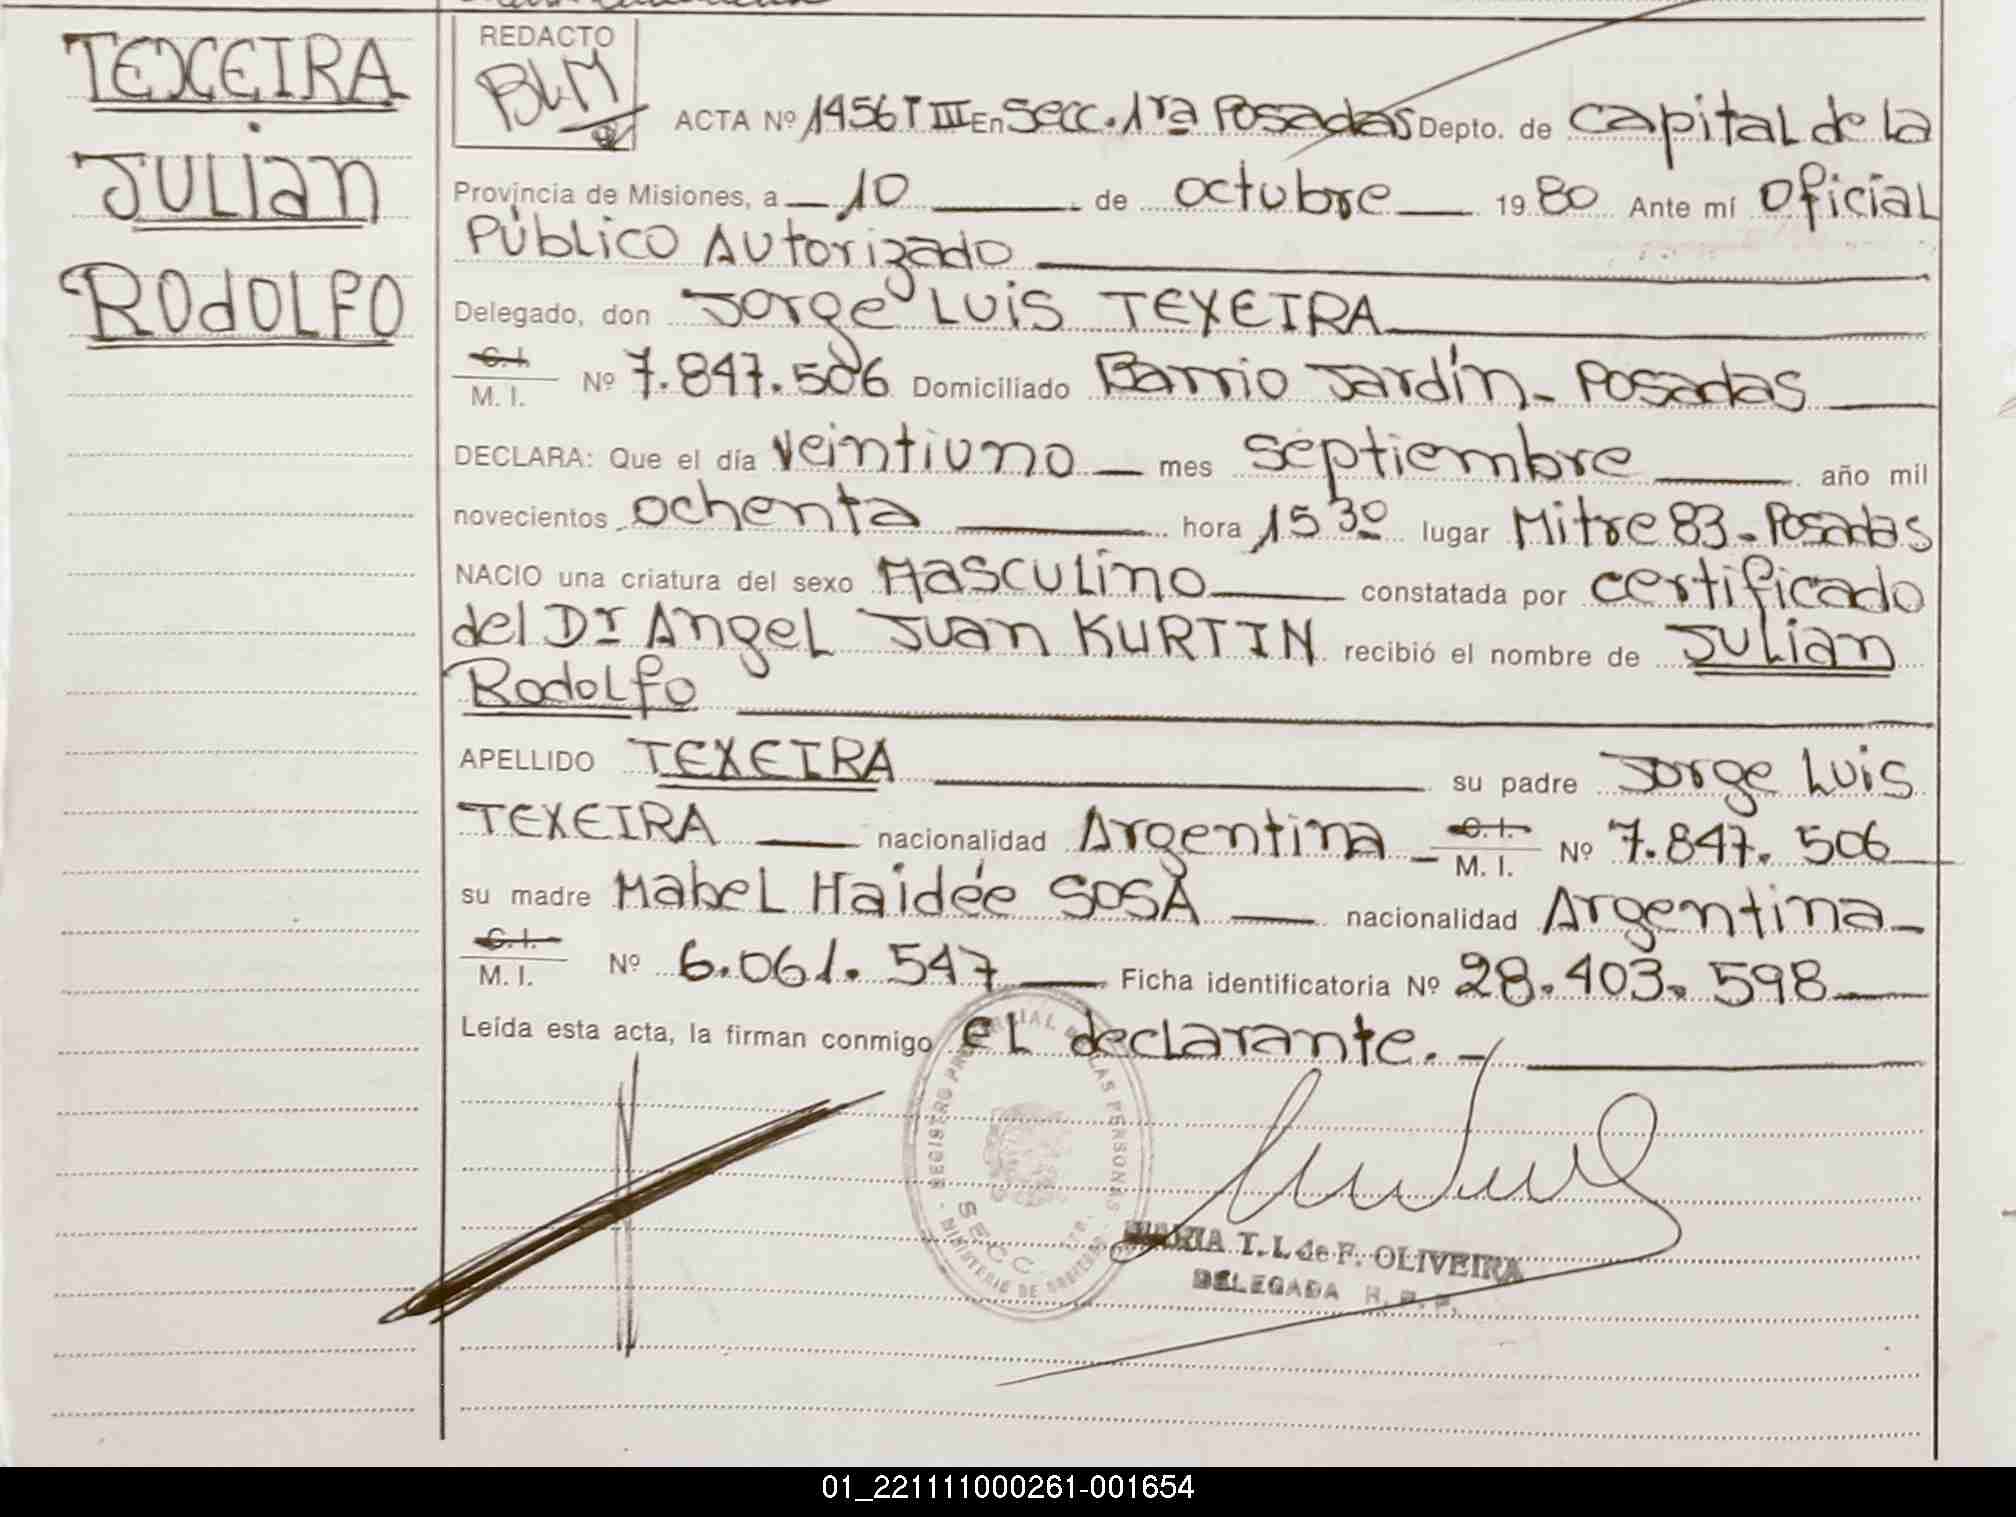 TEXEIRA
JULIAN
RODOLFO
REDACTO
BLM
ACTA Nº 1456 T III En Secc. 1ra Posadas Depto. de Capital de la
Provincia de Misiones, a 10 de octubre 1980 Ante mí Oficial
Público Autorizado
Delegado, don Jorge Luis TEXEIRA
C.I. M.I. Nº 7.847.506 Domiciliado Barrio Jardín - Posadas
DECLARA: Que el día veintiuno mes septiembre año mil
novecientos ochenta hora 15 30 lugar Mitre 83 - Posadas
NACIO una criatura del sexo Masculino constatada por certificado
del Dr Angel Juan KURTIN recibió el nombre de Julian
Rodolfo
APELLIDO TEXEIRA su padre Jorge Luis
TEXEIRA nacionalidad Argentina - C.I. M.I. Nº 7.847.506
su madre Mabel Haidée SOSA nacionalidad Argentina -
C.I. M.I. Nº 6.061.547 Ficha identificatoria Nº 28.403.598
Leída esta acta, la firman conmigo el declarante. -
REGISTRO PROVINCIAL DE LAS PERSONAS
SECC
MINISTERIO DE GOBIERNO
MARIA T. I. de F. OLIVEIRA
DELEGADA R. P. P.
01_221111000261-001654